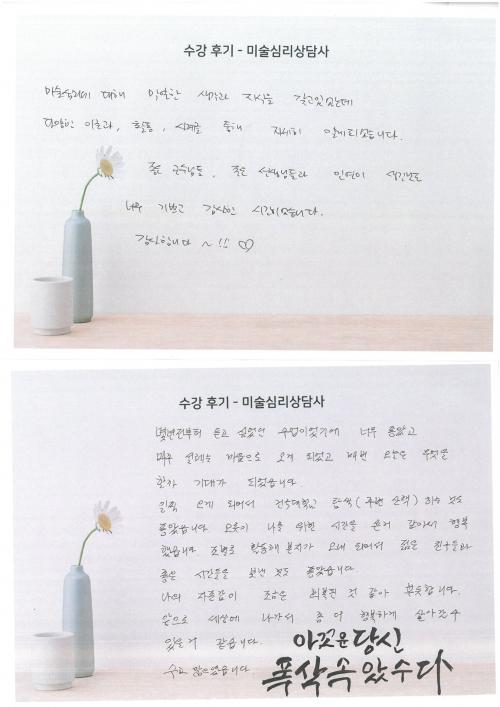 수강 후기 - 미술심리상담사
미술심리에 대해 막연한 생각과 지식을 갖고있었는데
다양한 이론과, 활동, 사례를 통해 자세히 알게되었습니다.
좋은 교수님들, 좋은 선생님들과 인연이 생긴것도
너무 기쁘고 감사한 시간이었습니다.
감사합니다 ~!! ♡
수강 후기 - 미술심리상담사
몇년전부터 듣고 싶었던 수업이었기에 너무 좋았고
매주 설레는 마음으로 오게 되었고 매번 오늘은 무엇을
할까 기대가 되었습니다.
일찍 오게 되어서 건국대학교 탐색(주변 산책) 하는 것도
좋았습니다. 오롯이 나를 위한 시간을 쓴거 같아서 행복
했습니다. 조별로 활동해 본지가 오래 되어서 젊은 친구들과
좋은 시간들을 보낸 것도 좋았습니다.
나의 자존감이 조금은 회복된 것 같아 뿌듯합니다.
앞으로 세상에 나가서 좀 더 행복하게 살아갈 수
있을거 같습니다.
수고 많으셨습니다.
아꼬운 당신
폭삭 속았수다